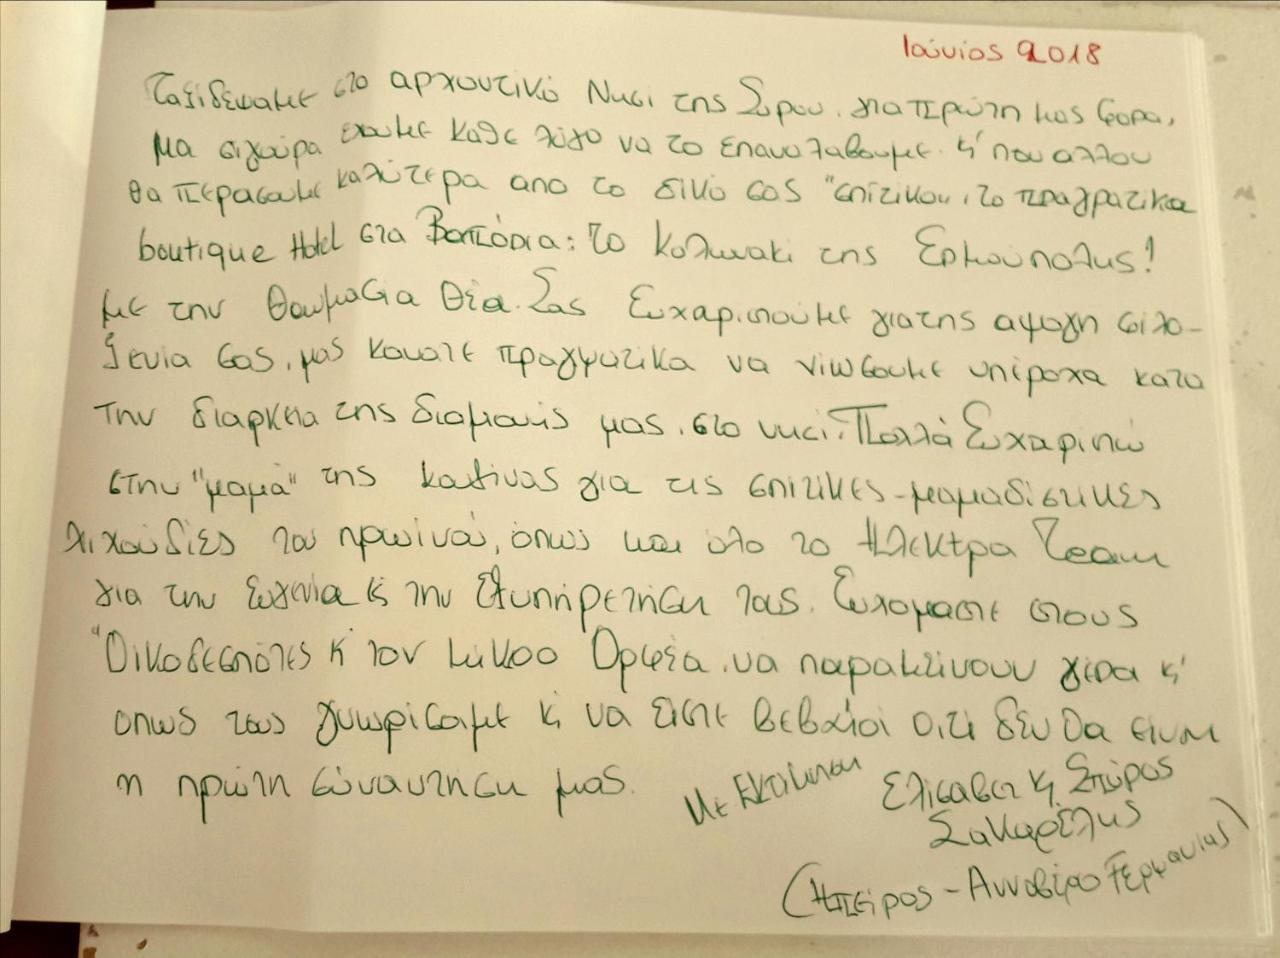 Ιούνιος 2018
Ταξιδεψαμε στο αρχοντικό Νησι της Σύρου. για πρώτη μας φορα,
μα σιγουρα εχουμε καθε λόγο να το επαναλαβουμε. κ' που αλλου
θα περασουμε καλύτερα απο το δικό σας "σπιτικου, το πραγματικα
boutique Hotel στα Βαπόρια: το κολωνακι της Ερμούπολης!
με την θαυμασια θέα. Σας Ευχαριστούμε για της αψογη φιλο-
ξενια σας, μας κανατε πραγματικα να νιωσουμε υπέροχα κατα
την διαρκεια της διαμονής μας, στο νησι. Πολλά Ευχαριστώ
στην "μαμά" της Κατινας για τις σπιτικες-μαμαδίστικες
λιχουδιές του πρωϊνού, όπως και όλο το Ηλεκτρα Team
για την ευγενια κ την εξυπηρετηση τους. Ευχομαστε στους
"Οικοδεσπότες κ' τον μικρο Ορφέα. να παραμείνουν γερα κ'
οπως τους γνωρισαμε κ να ειστε βεβαιοι οτι δεν θα ειναι
η πρώτη συναντηση μας.
Με Εκτιμηση
Ελισαβετ κ. Σπύρος
Σακαρέλης
(Ηπειρος - Αννοβέρο Γερμανιας)